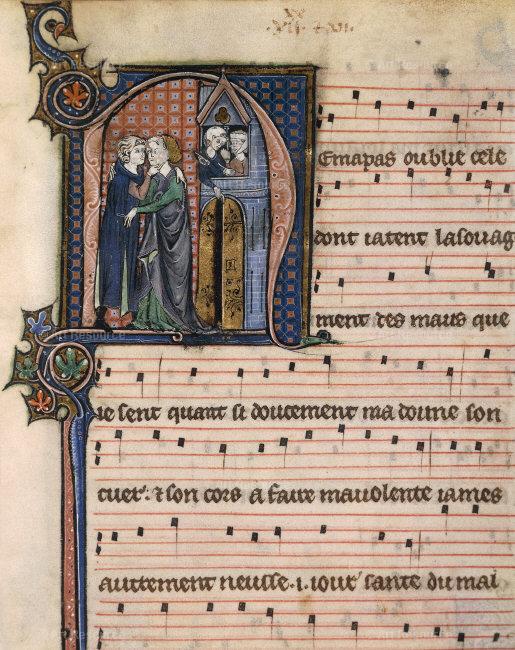 N
Emapas oublie cele
dont iatent lasouag
ment des maus que
ie sent quant si doucement ma doune son
cuer: ⁊ son cors a faire mavolente iames
autrement neusse .i. iour sante du mal